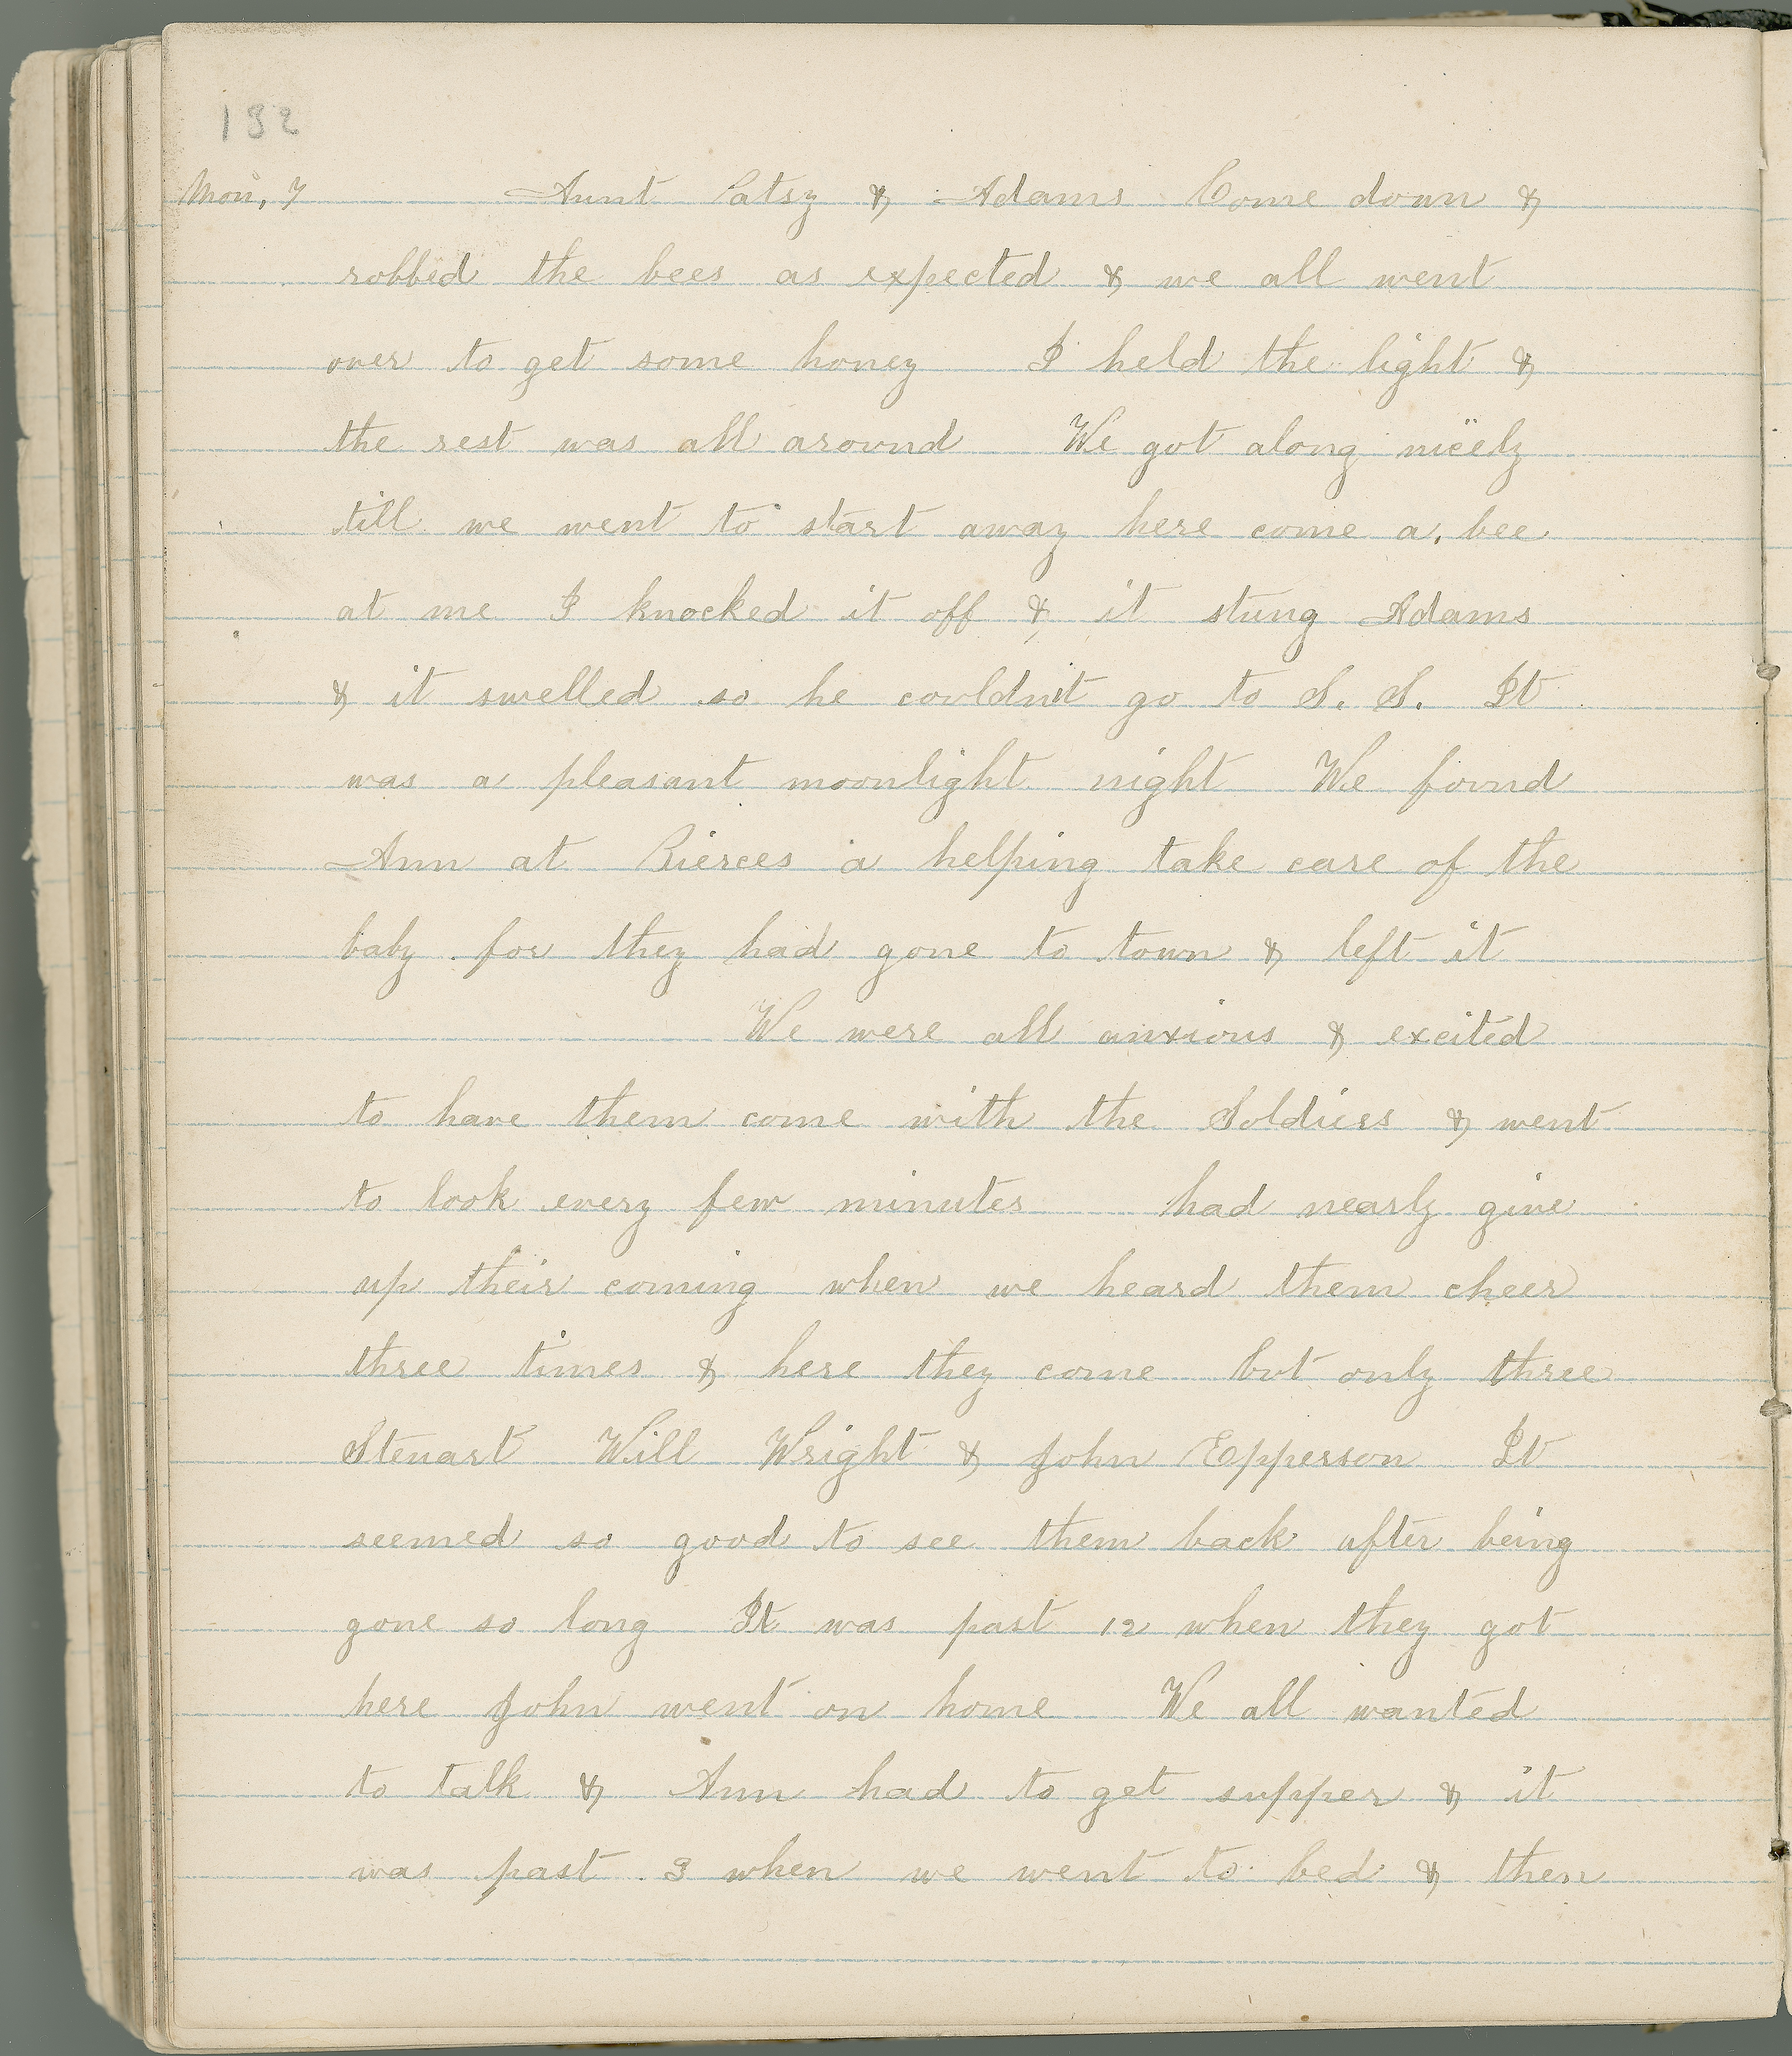 132
Mon, 7 Aunt Patsy & Adams Come down &
robbed the bees as expected & we all went
over to get some honey I held the light &
the rest was all around We got along nicely
till we went to start away here come a, bee
at me I knocked it off & it stung Adams
& it swelled so he couldn't go to S. S. It
was a pleasant moonlight night We found
Ann at Pierces a helping take care of the
baby for they had gone to town & left it
We were all anxious & excited
to have them come with the Soldiers & went
to look every few minutes had nearly give
up their coming when we heard them cheer
three times & here they come but only three
Stewart Will Wright & John Epperson It
seemed so good to see them back after being
gone so long It was past 12 when they got
here John went on home We all wanted
to talk & Ann had to get supper & it
was past 3 when we went to bed & then